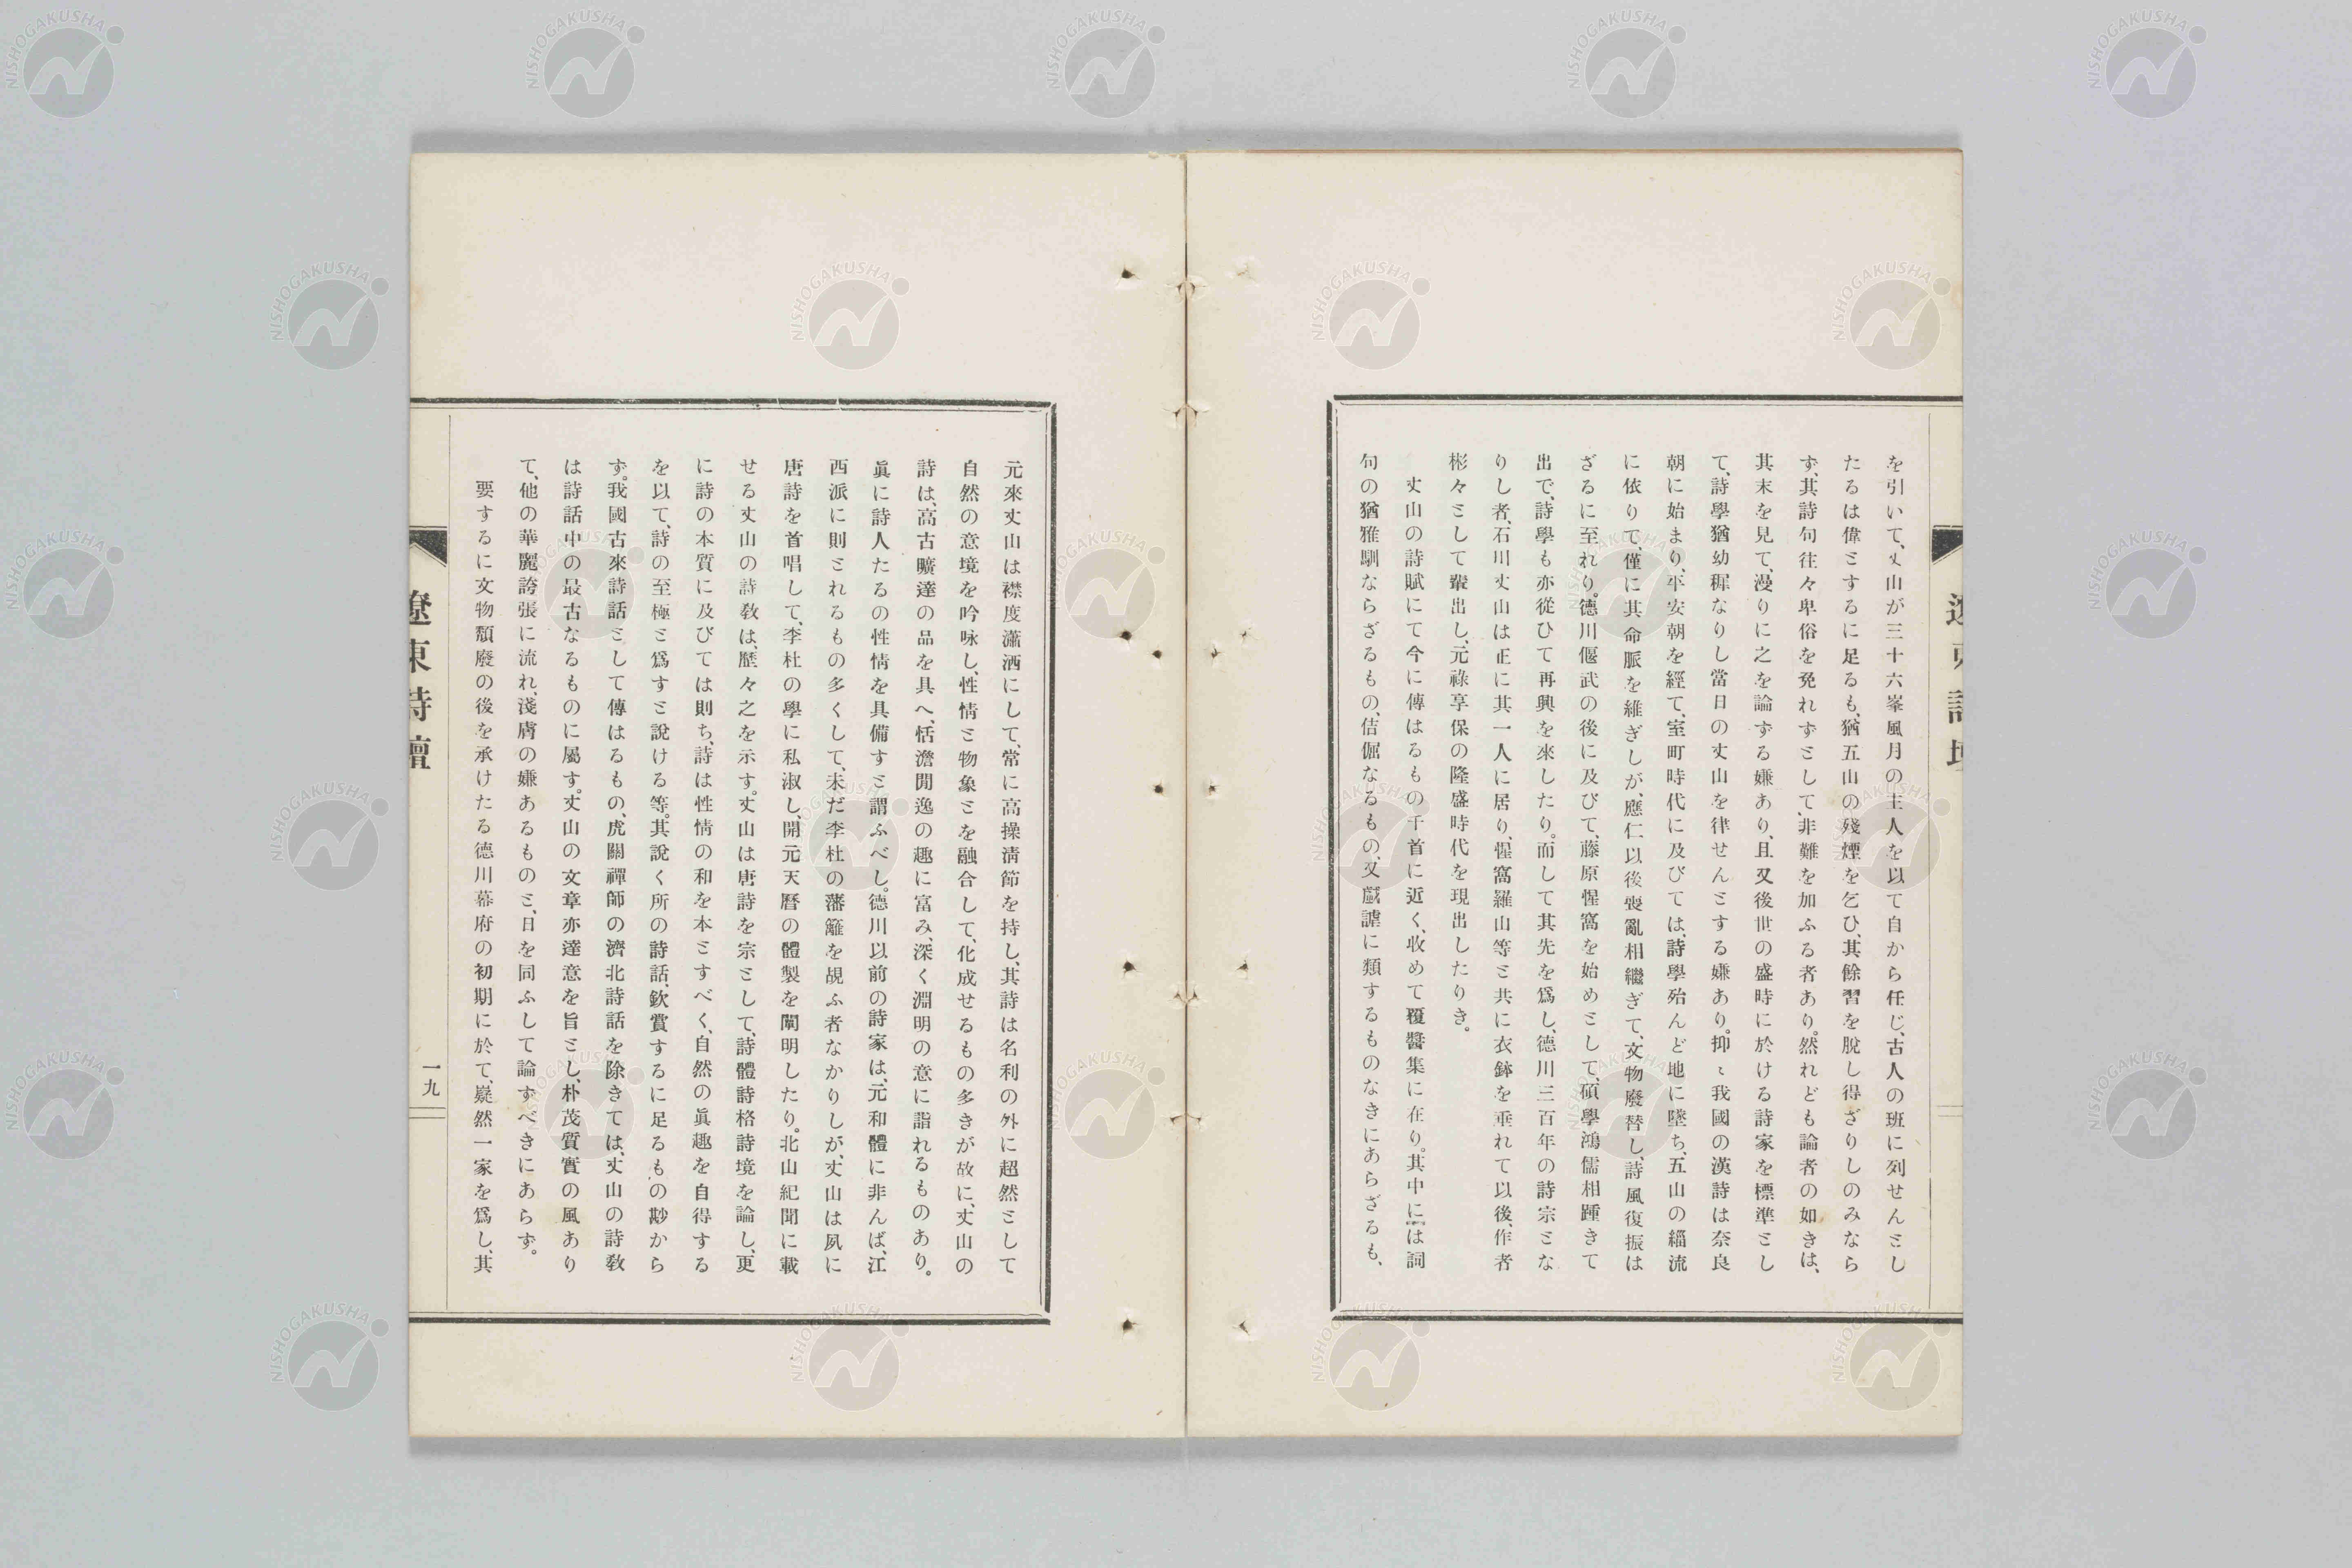 を引いて、丈山が三十六峯風月の主人を以て自から任じ、古人の班に列せんとし
たるは偉とするに足るも、猶五山の殘煙を乞ひ、其餘習を脫し得ざりしのみなら
ず、其詩句往々卑俗を免れずとして、非難を加ふる者あり。然れども論者の如きは、
其末を見て、漫りに之を論ずる嫌あり、且又後世の盛時に於ける詩家を標準とし
て、詩學猶幼穉なりし當日の丈山を律せんとする嫌あり。抑〻我國の漢詩は奈良
朝に始まり、平安朝を經て、室町時代に及びては、詩學殆んど地に墜ち、五山の緇流
に依りて、僅に其命脈を維ぎしが、應仁以後喪亂相繼ぎて、文物廢替し、詩風復振は
ざるに至れり。德川偃武の後に及びて、藤原惺窩を始めとして、碩學鴻儒相踵きて
出で、詩學も亦從ひて再興を來したり。而して其先を爲し、德川三百年の詩宗とな
りし者、石川丈山は正に其一人に居り、惺窩羅山等と共に衣鉢を垂れて以後、作者
彬々として輩出し、元祿享保の隆盛時代を現出したりき。
丈山の詩賦にて今に傳はるもの千首に近く、收めて覆醬集に在り。其中には詞
句の猶雅馴ならざるもの、佶倔なるもの、又戲謔に類するものなきにあらざるも、
元來丈山は襟度瀟洒にして、常に高操淸節を持し、其詩は名利の外に超然として
自然の意境を吟咏し、性情と物象とを融合して、化成せるもの多きが故に、丈山の
詩は、高古曠達の品を具へ、恬澹閒逸の趣に富み、深く淵明の意に詣れるものあり。
眞に詩人たるの性情を具備すと謂ふべし。德川以前の詩家は、元和體に非んば、江
西派に則とれるもの多くして、未だ李杜の藩籬を覘ふ者なかりしが、丈山は夙に
唐詩を首唱して、李杜の學に私淑し、開元天曆の體製を闡明したり。北山紀聞に載
せる丈山の詩敎は、歷々之を示す。丈山は唐詩を宗として、詩體詩格詩境を論し、更
に詩の本質に及びては則ち、詩は性情の和を本とすべく、自然の眞趣を自得する
を以て、詩の至極と爲すと說ける等。其說く所の詩話、欽賞するに足るもの尠から
ず。我國古來詩話として傳はるもの、虎關禪師の濟北詩話を除きては、丈山の詩敎
は詩話中の最古なるものに屬す。丈山の文章亦達意を旨とし、朴茂質實の風あり
て、他の華麗誇張に流れ、淺膚の嫌あるものと、日を同ふして論ずべきにあらず。
要するに文物頽廢の後を承けたる德川幕府の初期に於て、嶷然一家を爲し、其
遼東詩壇
一九